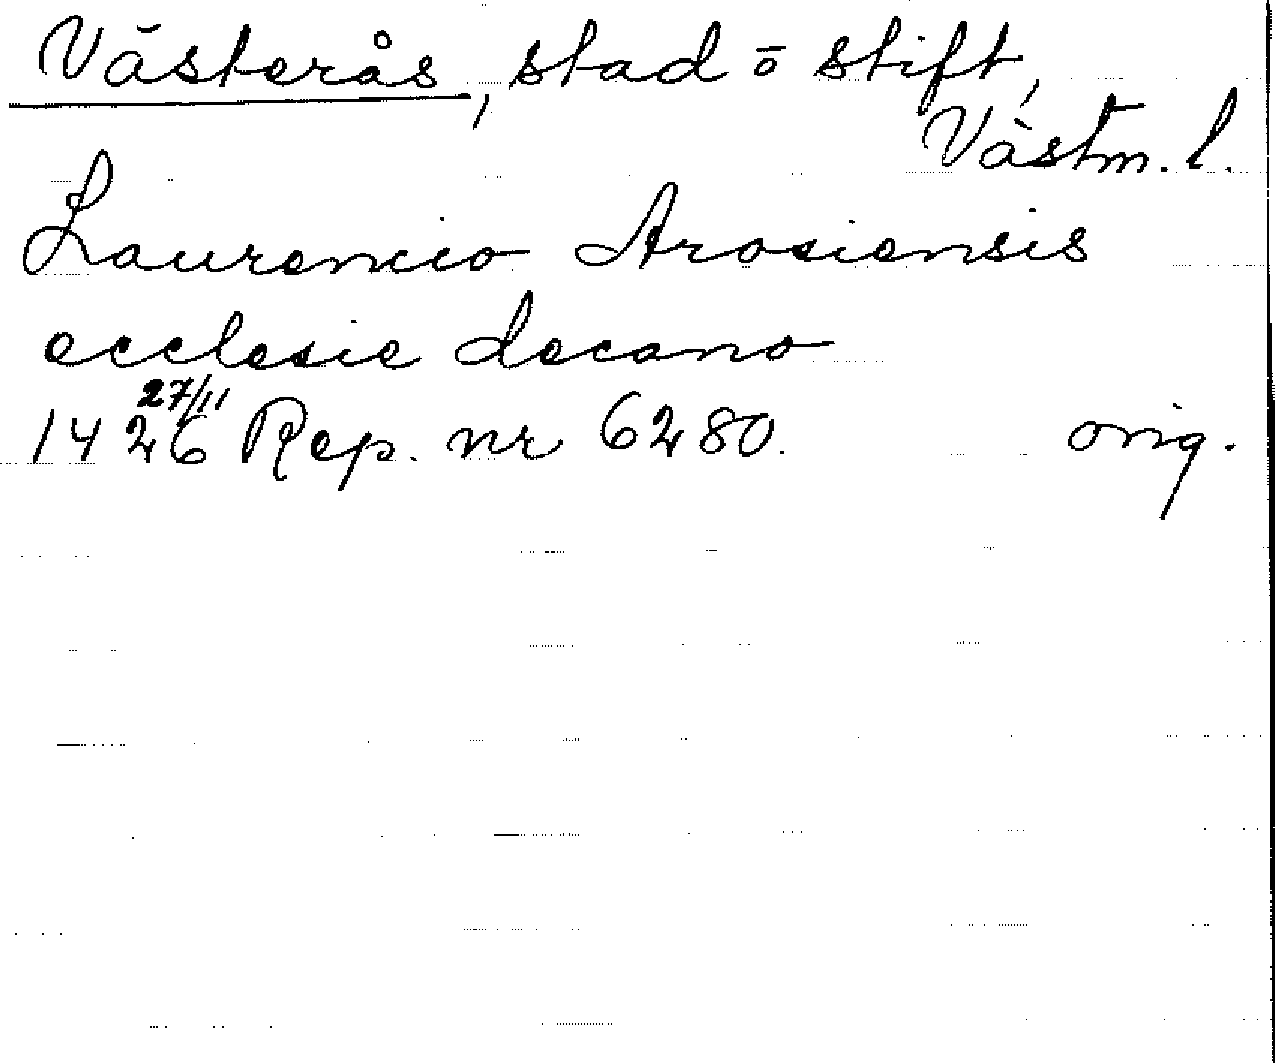 Västerås, stad ō stift,
Västm. l.
Laurencio Arosiensis
ecclesie decano
27/11
1426 Rep. nr 6280. orig.